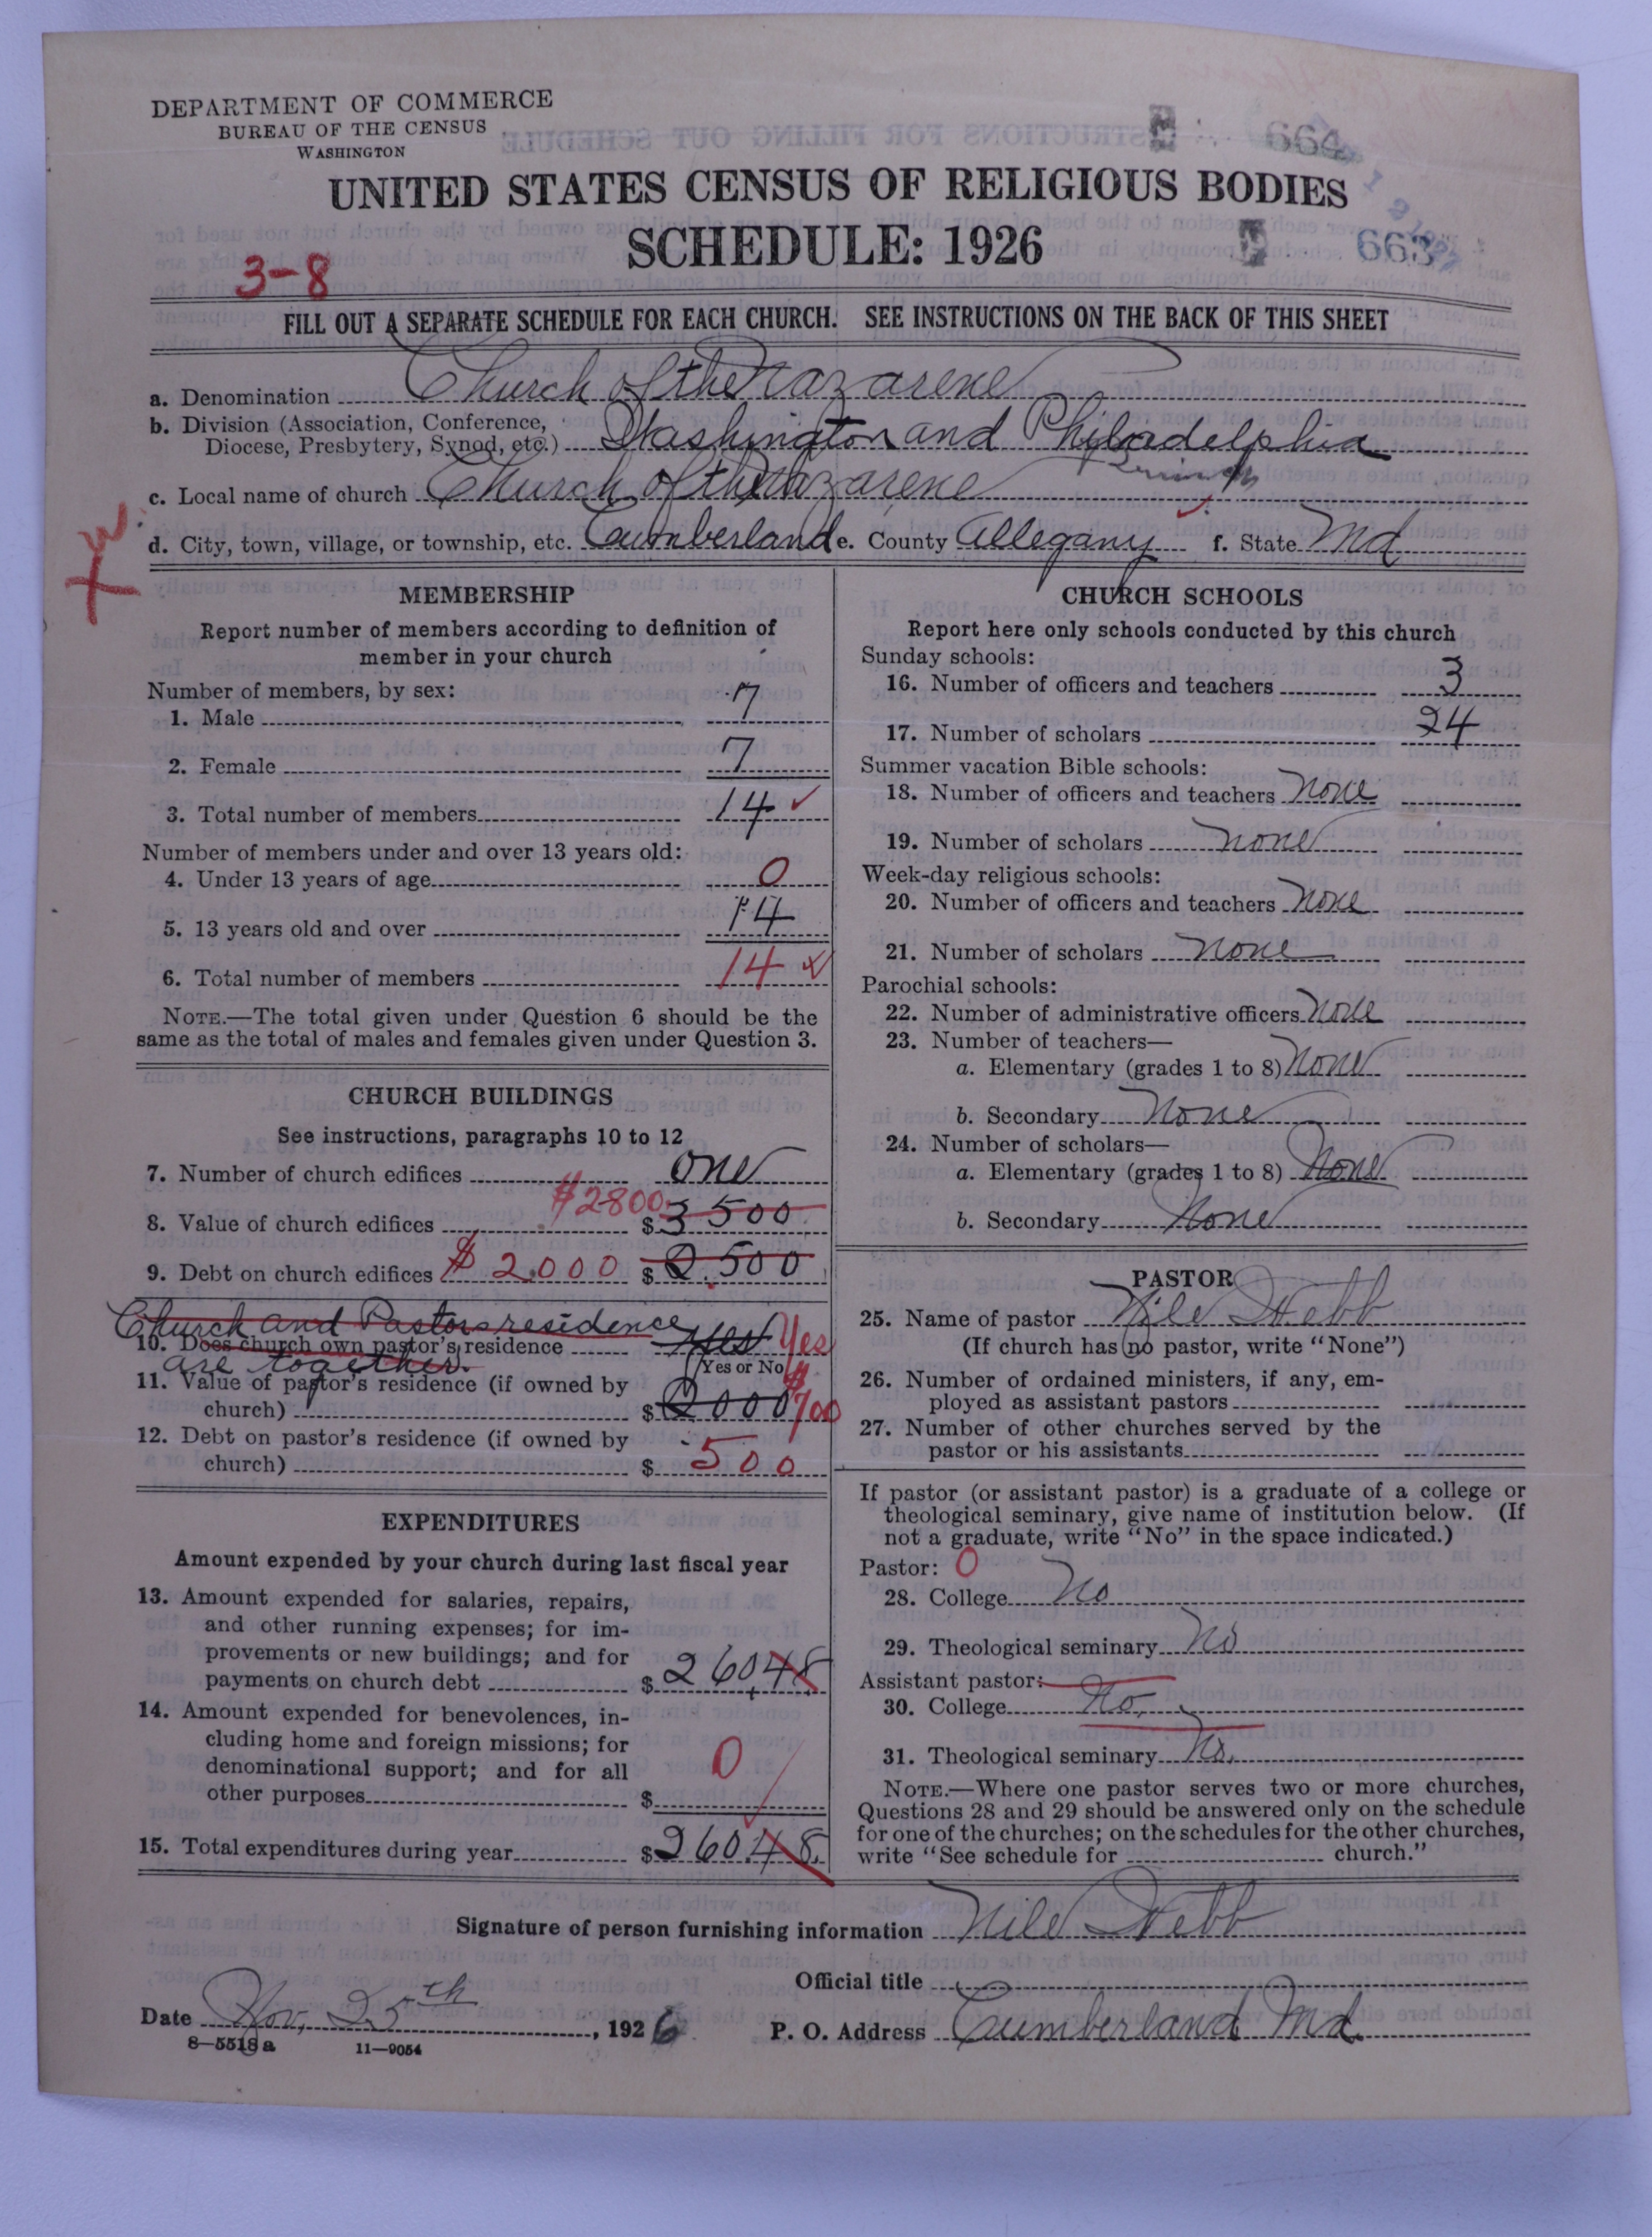 DEPARTMENT OF COMMERCE
BUREAU OF THE CENSUS
WASHINGTON
664
UNITED STATES CENSUS OF RELIGIOUS BODIES
SCHEDULE: 1926
663
3-8
FILL OUT A SEPARATE SCHEDULE FOR EACH CHURCH. SEE INSTRUCTIONS ON THE BACK OF THIS SHEET
a. Denomination Church of the Nazarene
b. Division (Association, Conference, Diocese, Presbytery, Synod, etc.) Washington and Philadelphia
c. Local name of church Church of the Nazarene
d. City, town, village, or township, etc. Cumberland e. County Allegany f. State Md
MEMBERSHIP
Report number of members according to definition of
member in your church
Number of members, by sex:
1. Male 7
2. Female 7
3. Total number of members 14 ✓
Number of members under and over 13 years old:
4. Under 13 years of age 0
5. 13 years old and over 14
6. Total number of members 14
NOTE.—The total given under Question 6 should be the
same as the total of males and females given under Question 3.
CHURCH BUILDINGS
See instructions, paragraphs 10 to 12
7. Number of church edifices one
8. Value of church edifices $2800 $ 3500
9. Debt on church edifices $2000 $ 2500
Church and Pastors residence
10. Does church own pastor's residence yes Yes
are together. (Yes or No)
11. Value of pastor's residence (if owned by
church) $ 2000 $700
12. Debt on pastor's residence (if owned by
church) $ 500
EXPENDITURES
Amount expended by your church during last fiscal year
13. Amount expended for salaries, repairs,
and other running expenses; for im-
provements or new buildings; and for
payments on church debt $ 260.48
14. Amount expended for benevolences, in-
cluding home and foreign missions; for
denominational support; and for all
other purposes $ 0
15. Total expenditures during year $ 260.48
CHURCH SCHOOLS
Report here only schools conducted by this church
Sunday schools:
16. Number of officers and teachers 3
17. Number of scholars 24
Summer vacation Bible schools:
18. Number of officers and teachers None
19. Number of scholars none
Week-day religious schools:
20. Number of officers and teachers None
21. Number of scholars none
Parochial schools:
22. Number of administrative officers None
23. Number of teachers—
a. Elementary (grades 1 to 8) None
b. Secondary None
24. Number of scholars—
a. Elementary (grades 1 to 8) None
b. Secondary None
PASTOR
25. Name of pastor Nile Webb
(If church has no pastor, write "None")
26. Number of ordained ministers, if any, em-
ployed as assistant pastors
27. Number of other churches served by the
pastor or his assistants
If pastor (or assistant pastor) is a graduate of a college or
theological seminary, give name of institution below. (If
not a graduate, write "No" in the space indicated.)
Pastor: 0
28. College No
29. Theological seminary No
Assistant pastor:
30. College No.
31. Theological seminary No.
NOTE.—Where one pastor serves two or more churches,
Questions 28 and 29 should be answered only on the schedule
for one of the churches; on the schedules for the other churches,
write "See schedule for church."
Signature of person furnishing information Nile Webb
Official title
Date Nov, 25th, 1926
P. O. Address Cumberland Md.
8—5518 a 11—9054